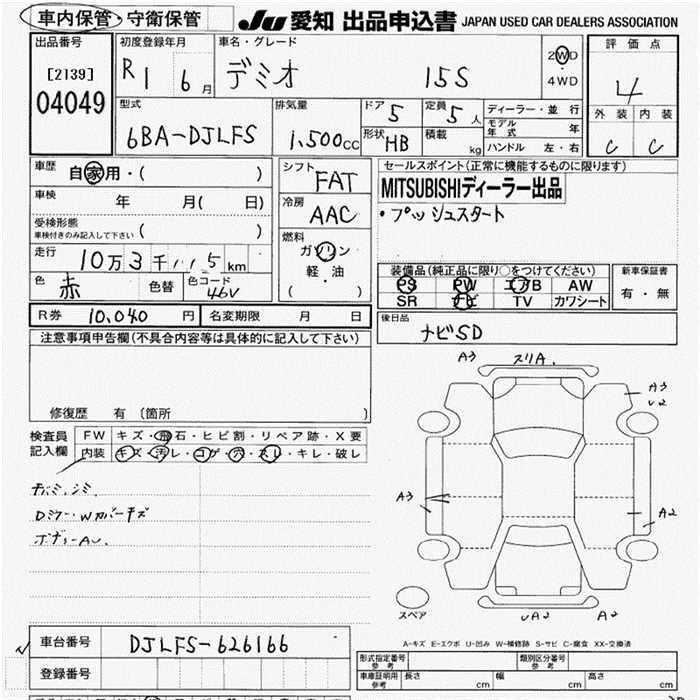 車内保管・守衛保管 JU 愛知 出品申込書 JAPAN USED CAR DEALERS ASSOCIATION
出品番号 初度登録年月 車名・グレード 2WD 評価点
[2139] R1 6月 デミオ 15S ・ 4
04049 4WD 外装 内装
型式 排気量 ドア 5 定員 5人 ディーラー・並行 C C
6BA-DJLFS 1,500cc 形状 HB 積載 kg モデル年式 年
ハンドル 左・右
車歴 自家用・( ) シフト FAT セールスポイント(正常に機能するものに限ります)
車検 年 月( 日) 冷房 AAC MITSUBISHIディーラー出品
受検形態 ( ) ・プッシュスタート
車検付きのみ記入して下さい
燃料 ガソリン
走行 10万3千 5km 軽・油 装備品(純正品に限り○をつけてください) 新車保証書
色 赤 色替 色コード 46V ( ) PS PW エアB AW 有・無
SR ナビ TV カワシート
R券 10,040円 名変期限 月 日 後日品
ナビSD
注意事項申告欄(不具合内容等は具体的に記入して下さい)
A3 スリA.
A3
U2
修復歴 有 〔箇所 〕
検査員記入欄 FW キズ・飛石・ヒビ割・リペア跡・X要
内装 キズ・汚レ・コゲ・穴・スレ・キレ・破レ
A3
A2
Dミラー・Wカバーキズ
ボディーAU.
スペア
UA2 A2
車台番号 DJLFS-626166 A-キズ E-エクボ U-凹み W-補修跡 S-サビ C-腐食 XX-交換済
登録番号 形式指定番号 参考 類別区分番号 参考
車庫証明用 参考 長さ cm 幅 cm 高さ cm